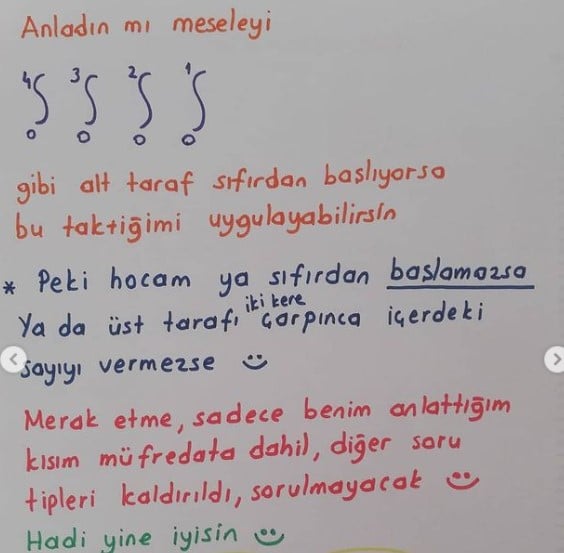 Anladın mı meseleyi
4∫0 3∫0 2∫0 1∫0
gibi alt taraf sıfırdan başlıyorsa
bu taktiğimi uygulayabilirsin
* Peki hocam ya sıfırdan başlamazsa
Ya da üst tarafı iki kere çarpınca içerdeki
sayıyı vermezse
Merak etme, sadece benim anlattığım
kısım müfredata dahil, diğer soru
tipleri kaldırıldı, sorulmayacak
Hadi yine iyisin